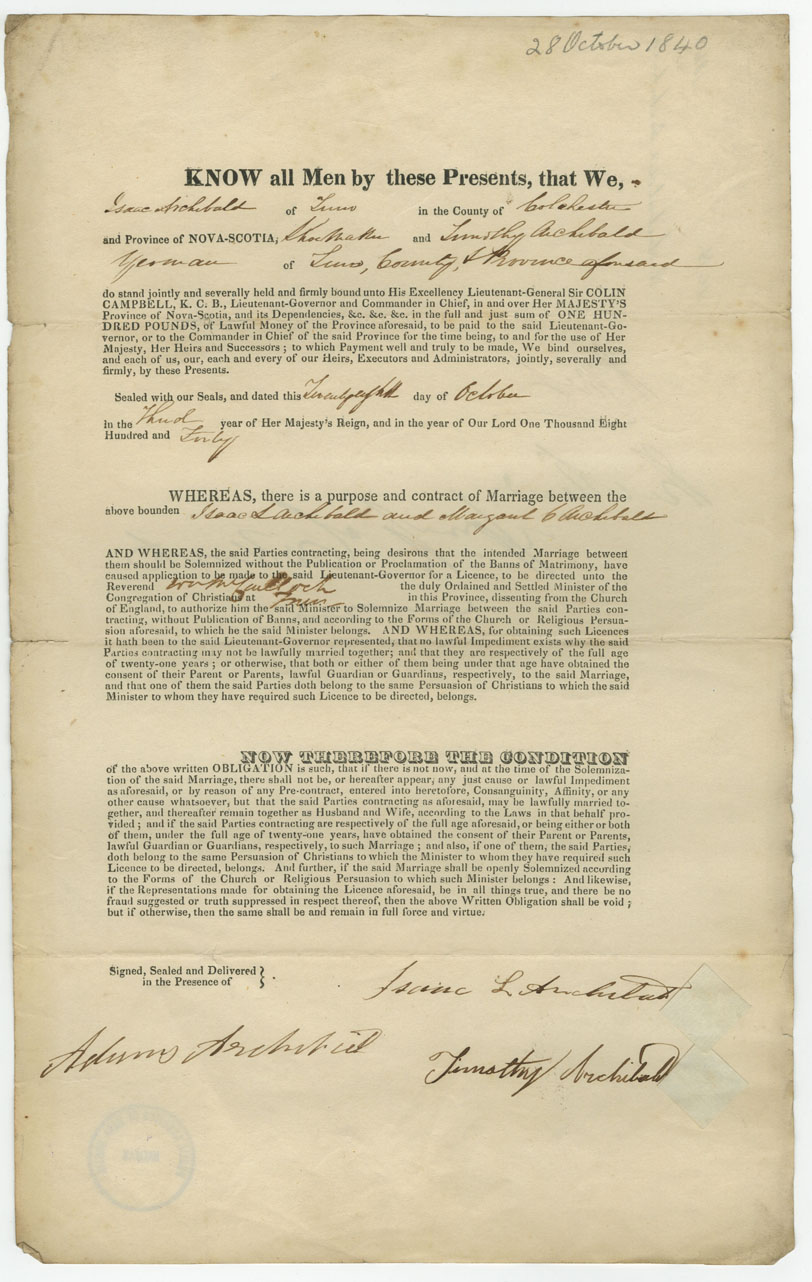 28 October 1840
KNOW all Men by these Presents, that We,
Isaac Archibald of Truro in the County of Colchester
and Province of NOVA-SCOTIA, Shoe Maker and Timothy Archibald
Yeoman of Truro, County, & Province aforesaid
do stand jointly and severally held and firmly bound unto His Excellency Lieutenant-General Sir COLIN
CAMPBELL, K. C. B., Lieutenant-Governor and Commander in Chief, in and over Her MAJESTY'S
Province of Nova-Scotia, and its Dependencies, &c. &c. &c. in the full and just sum of ONE HUN-
DRED POUNDS, of Lawful Money of the Province aforesaid, to be paid to the said Lieutenant-Go-
vernor, or to the Commander in Chief of the said Province for the time being, to and for the use of Her
Majesty, Her Heirs and Successors; to which Payment well and truly to be made, We bind ourselves,
and each of us, our, each and every of our Heirs, Executors and Administrators, jointly, severally and
firmly, by these Presents.
Sealed with our Seals, and dated this Twentyeighth day of October
In the Third year of Her Majesty's Reign, and in the year of Our Lord One Thousand Eight
Hundred and Forty
WHEREAS, there is a purpose and contract of Marriage between the
above bounden Isaac L Archibald and Margaret C Archibald
AND WHEREAS, the said Parties contracting, being desirons that the intended Marriage between
them should be Solemnized without the Publication or Proclamation of the Banns of Matrimony, have
caused application to be made to the said Lieutenant-Governor for a Licence, to be directed unto the
Reverend Wm McCulloch the duly Ordained and Settled Minister of the
Congregation of Christians at Truro in this Province, dissenting from the Church
of England, to authorize him the said Minister to Solemnize Marriage between the said Parties con-
tracting, without Publication of Banns, and according to the Forms of the Church or Religious Persua-
sion aforesaid, to which he the said Minister belongs. AND WHEREAS, for obtaining such Licences
it hath been to the said Lieutenant-Governor represented, that no lawful Impediment exists why the said
Parties contracting may not be lawfully married together; and that they are respectively of the full age
of twenty-one years; or otherwise, that both or either of them being under that age have obtained the
consent of their Parent or Parents, lawful Guardian or Guardians, respectively, to the said Marriage,
and that one of them the said Parties doth belong to the same Persuasion of Christians to which the said
Minister to whom they have required such Licence to be directed, belongs.
NOW THEREFORE THE CONDITION
of the above written OBLIGATION is such, that if there is not now, and at the time of the Solemniza-
tion of the said Marriage, there shall not be, or hereafter appear, any just cause or lawful Impediment
as aforesaid, or by reason of any Pre-contract, entered into heretofore, Consanguinity, Affinity, or any
other cause whatsoever, but that the said Parties contracting as aforesaid, may be lawfully married to-
gether, and thereafter remain together as Husband and Wife, according to the Laws in that behalf pro-
vided; and if the said Parties contracting are respectively of the full age aforesaid, or being either or both
of them, under the full age of twenty-one years, have obtained the consent of their Parent or Parents,
lawful Guardian or Guardians, respectively, to such Marriage; and also, if one of them, the said Parties,
doth belong to the same Persuasion of Christians to which the Minister to whom they have required such
Licence to be directed, belongs. And further, if the said Marriage shall be openly Solemnized according
to the Forms of the Church or Religious Persuasion to which such Minister belongs: And likewise,
if the Representations made for obtaining the Licence aforesaid, be in all things true, and there be no
fraud suggested or truth suppressed in respect thereof, then the above Written Obligation shall be void;
but if otherwise, then the same shall be and remain in full force and virtue.
Signed, Sealed and Delivered
in the Presence of
Isaac L Archibald
Adams Archibald
Timothy Archibald